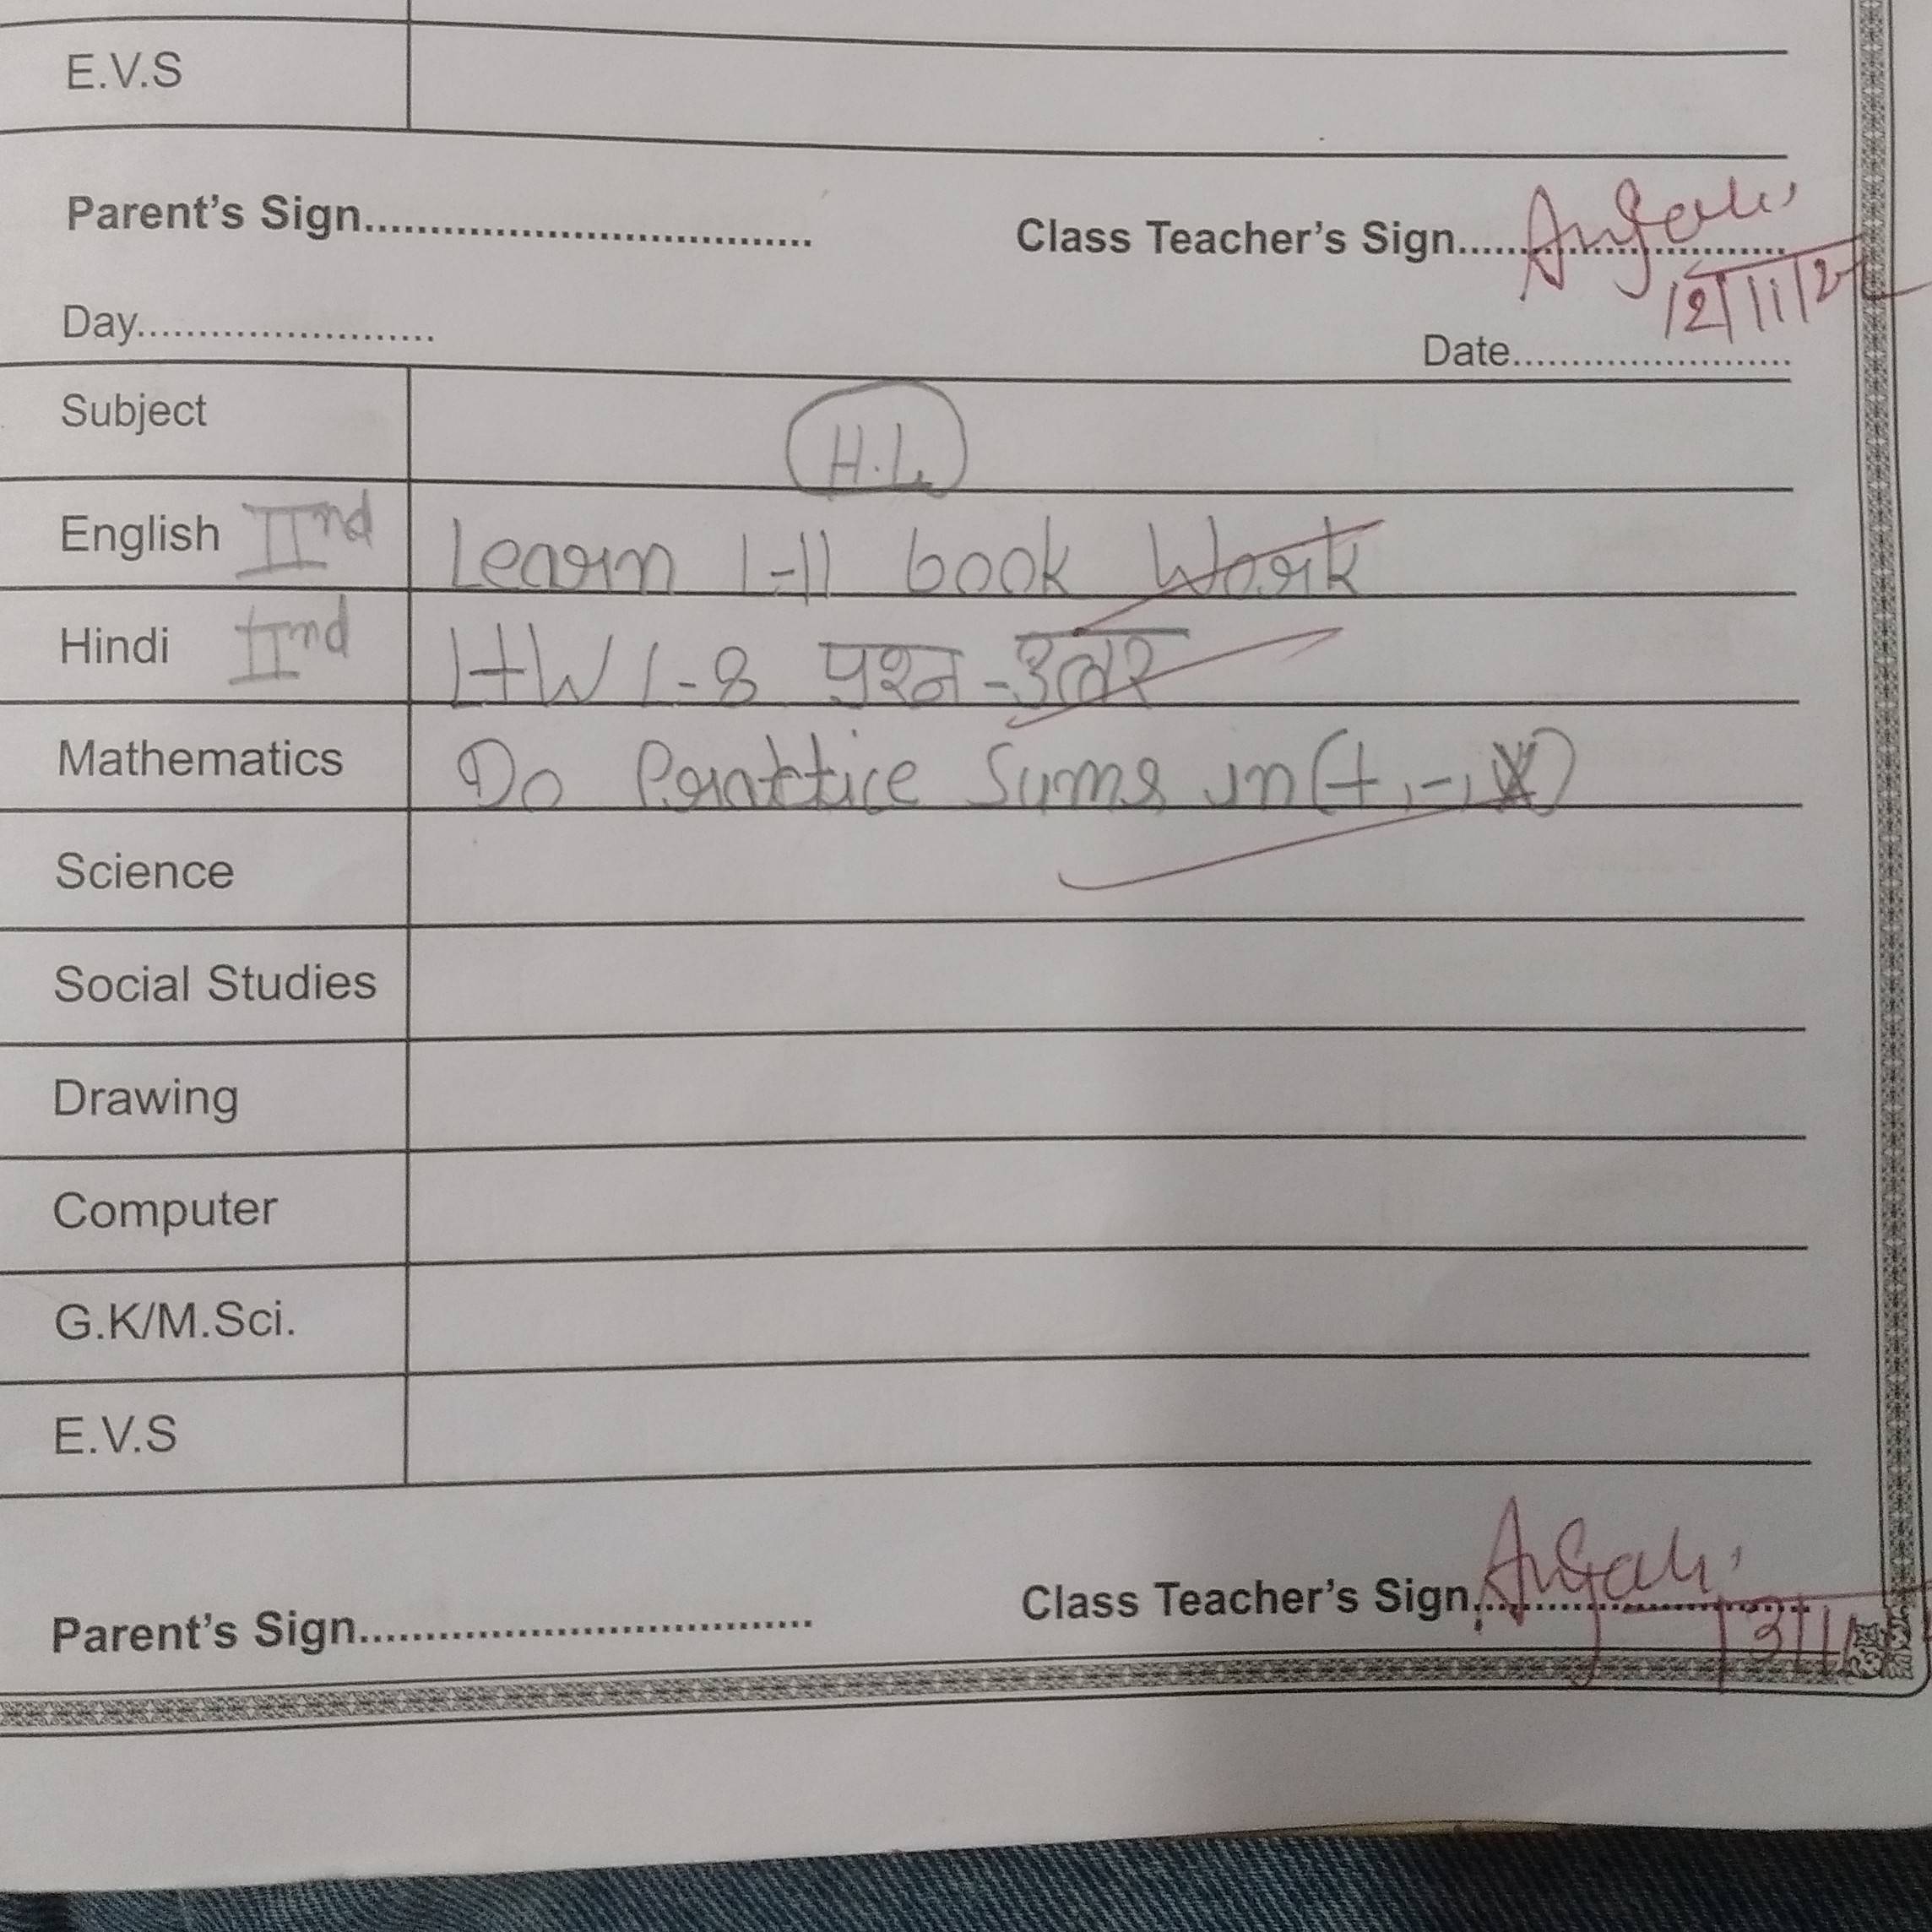 E.V.S
Parent's Sign.................................. Class Teacher's Sign.......................... Anjali
12/11/2
Day........................ Date........................
Subject H.L.
English IInd Learn L-11 book Work
Hindi IInd L+W L-8 प्रश्न-उत्तर
Mathematics Do Practtice Sums in (+,-,x)
Science
Social Studies
Drawing
Computer
G.K/M.Sci.
E.V.S
Parent's Sign.................................. Class Teacher's Sign.......................... Anjali
13/11